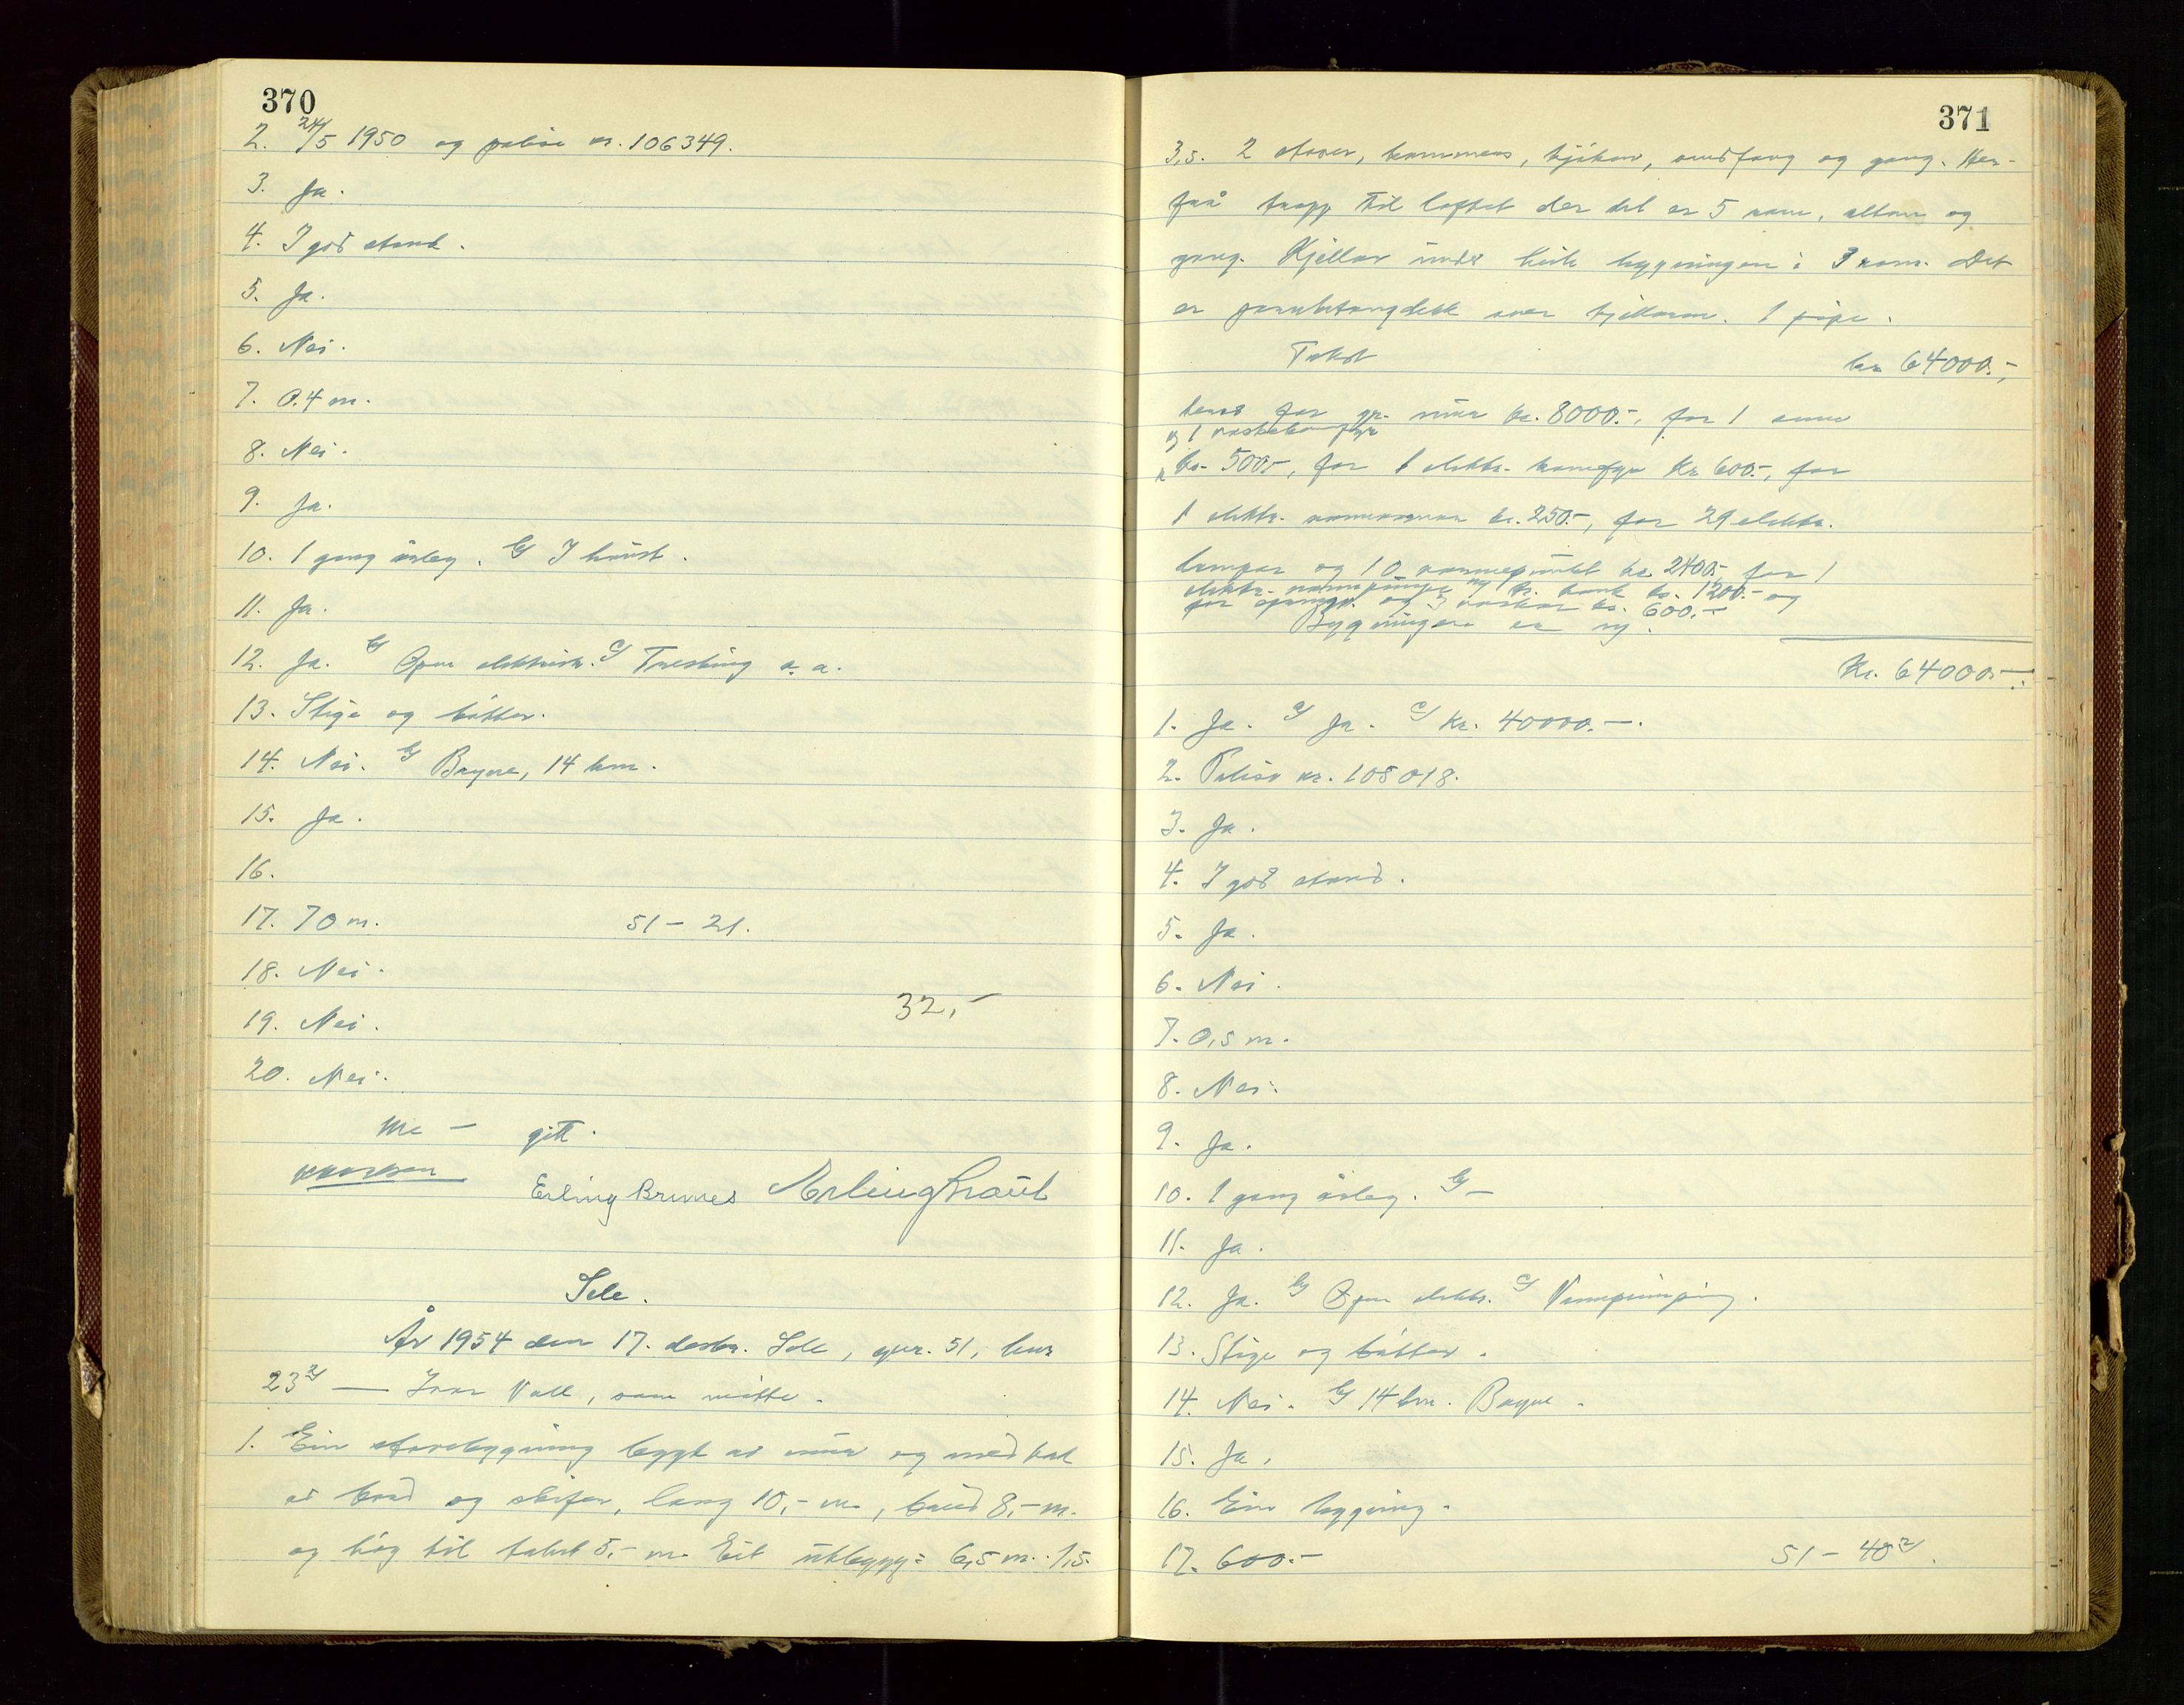 370
2. 24/5 1950 og polise nr. 106349.
3. Ja.
4. I god stand.
5. Ja.
6. Nei.
7. 0.4 m.
8. Nei.
9. Ja.
10. 1 gang årleg. b/ I haust.
11. Ja.
12. Ja. b/ Open elektrisk. c/ Tresking o. a.
13. Stige og bøtter.
14. Nei. b/ Bryne, 14 km.
15. Ja.
16.
17. 70 m. 51 – 21.
18. Nei.
19. Nei. 32,–
20. Nei.
Me — gitt.
Erling Brunes Erling Kraul
Sele.
År 1954 den 17. desbr. Sele, gnr. 51, bnr
23 — Ivar Voll, som møtte.
1. Ein stovebygning bygt av mur og med tak
av bord og skifer, lang 10,– m, breid 8,– m.
og høg til taket 5,– m. Eit utbygg: 6,5 m. 1,5.
371
3,5. 2 stover, kammers, kjøken, andfang og gang. Her-
frå trapp til loftet der det er 5 rom, altan og
gang. Kjellar under heile bygningen i 3 rom. Det
er jarnbetongdekk over kjellaren. 1 pipe.
Takst kr. 64000.–,
herav for gr. mur kr. 8000.–, for 1 omn
og 1
kr. 500.–, for 1 elektr. komfyr kr. 600.–, for
1 elektr. kr. 250.–, for 29 elektr.
lamper og 10 varmepunkt kr. 2400.– for 1
elektr. og tr. tank kr. 1200.– og
for og 3 vaskar kr. 600.–
Bygningen er ny.
Kr. 64000.–.
1. Ja. a/ Ja. c/ Kr. 40000.–.
2. Polise nr. 108018.
3. Ja.
4. I god stand.
5. Ja.
6. Nei.
7. 0,5 m.
8. Nei.
9. Ja.
10. 1 gang årleg. b/ –
11. Ja.
12. Ja. b/ Open elektr. c/ Vannpumping.
13. Stige og bøtter.
14. Nei. b/ 14 km. Bryne.
15. Ja.
16. Ein bygning.
17. 600.– 51 – 40